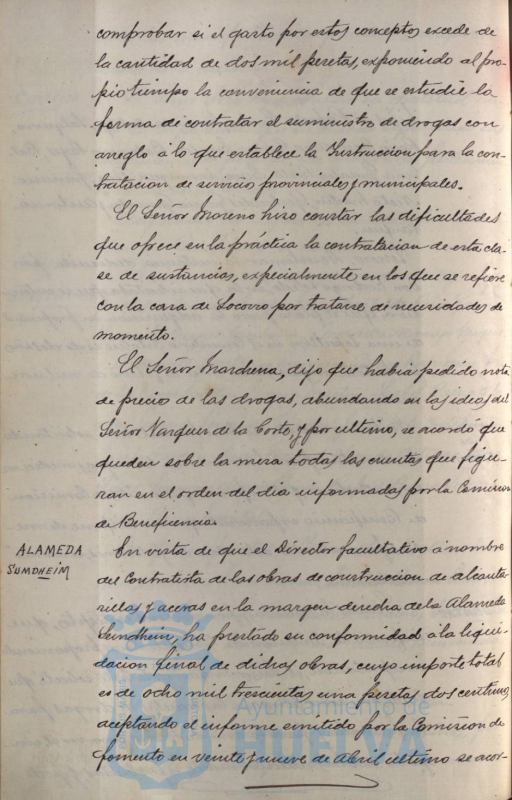 comprobar si el gasto por estos conceptos excede de
la cantidad de dos mil pesetas, exponiendo al pro-
pio tiempo la conveniencia de que se estudie la
forma de contratar el suministro de drogas con
arreglo á lo que establece la Instruccion para la con-
tratacion de servicios provinciales y municipales.
El Señor Moreno hizo constar las dificultades
que ofrece en la práctica la contratacion de esta cla-
se de sustancias, expecialmente en los que se refiere
con la casa de Socorro por tratarse de necesidades de
momento.
El Señor Marchena, dijo que habia pedido nota
de precio de las drogas, abundando en las ideas del
Señor Vazquez de la Corte, y por ultimo, se acordó que
queden sobre la mesa todas las cuentas que figu-
ran en el orden del dia informadas por la Comision
de Beneficencia.
ALAMEDA
SUMDHEIM
En vista de que el Director facultativo á nombre
del Contratista de las obras de construccion de alcanta-
rillas y aceras en la margen derecha de la Alameda
Sundheim, ha prestado su conformidad á la liqui-
dacion final de dichas obras, cuyo importe total
es de ocho mil trescientas una pesetas dos centimos,
aceptando el informe emitido por la Comision de
Fomento en veinte y nueve de Abril ultimo se acor-
Ayuntamiento de
HUELVA